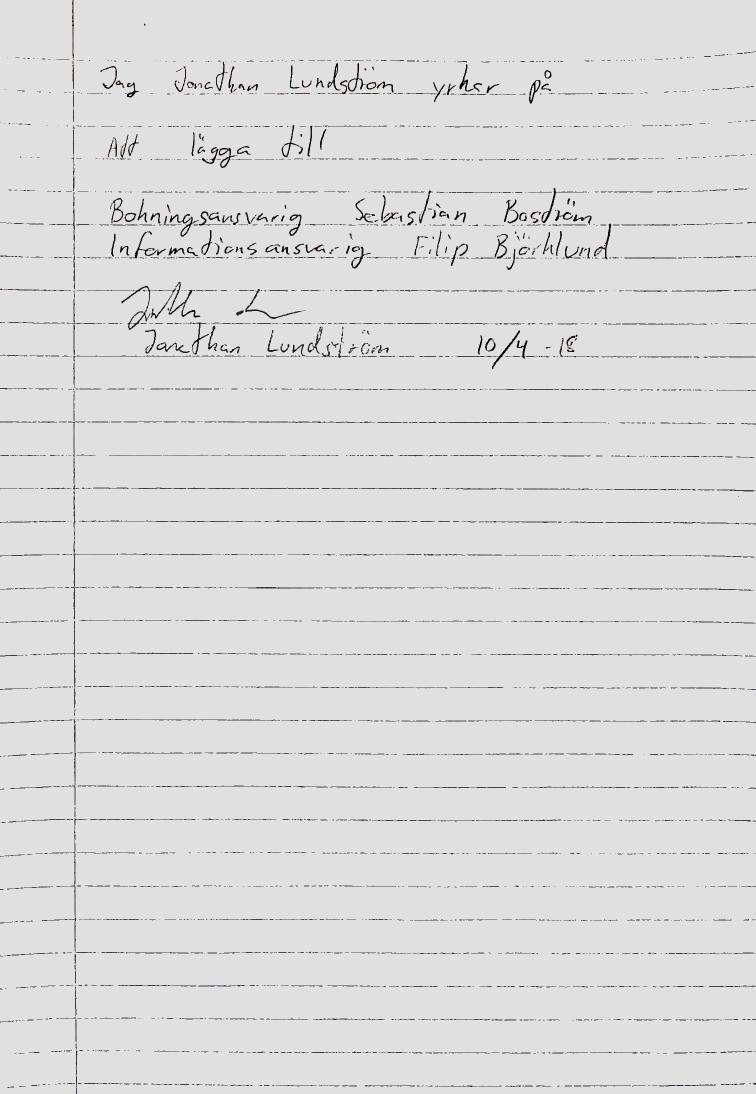 Jag Jonathan Lundström yrker på
Att lägga till
Bokningsansvarig Sebastian Boström
Informationsansvarig Filip Björklund
Jonathan Lundström 10/4 -18